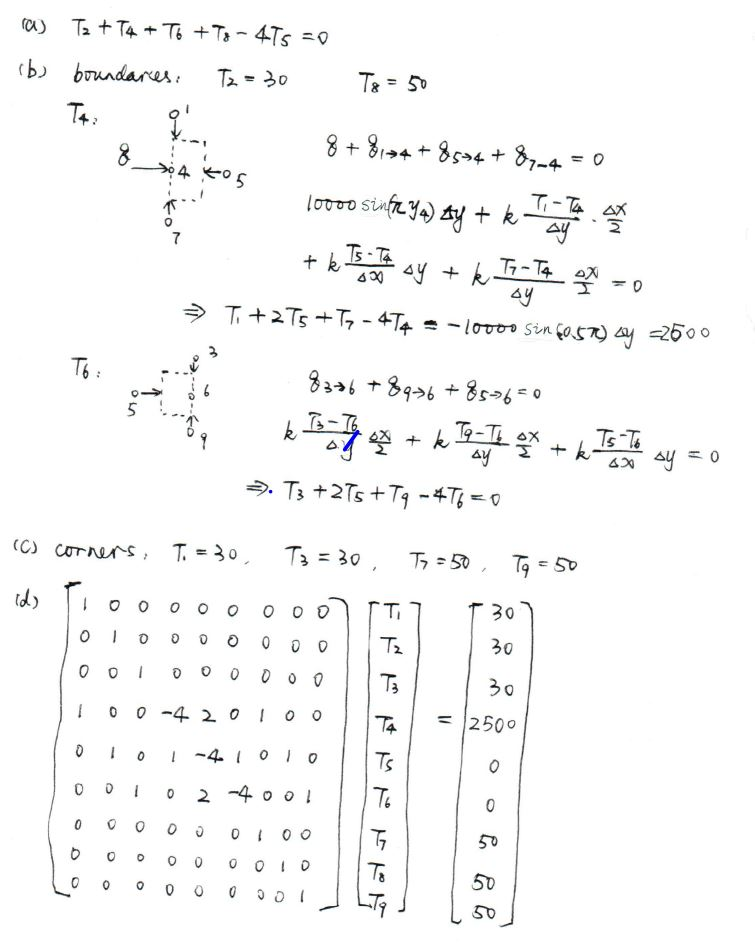 (a) T2 + T4 + T6 + T8 - 4T5 = 0
(b) boundaries: T2 = 30 T8 = 50
T4:
1
q 4 5
7
q + q1→4 + q5→4 + q7-4 = 0
10000 sin(π y4) Δy + k (T1 - T4)/Δy · Δx/2
+ k (T5 - T4)/Δx Δy + k (T7 - T4)/Δy Δx/2 = 0
⇒ T1 + 2T5 + T7 - 4T4 = -10000 sin(0.5π) Δy = 2500
T6:
3
5 6
9
q3→6 + q9→6 + q5→6 = 0
k (T3 - T6)/Δy Δx/2 + k (T9 - T6)/Δy Δx/2 + k (T5 - T6)/Δx Δy = 0
⇒. T3 + 2T5 + T9 - 4T6 = 0
(c) corners: T1 = 30, T3 = 30, T7 = 50, T9 = 50
(d)
1 0 0 0 0 0 0 0 0 T1 30
0 1 0 0 0 0 0 0 0 T2 30
0 0 1 0 0 0 0 0 0 T3 30
1 0 0 -4 2 0 1 0 0 T4 = 2500
0 1 0 1 -4 1 0 1 0 T5 0
0 0 1 0 2 -4 0 0 1 T6 0
0 0 0 0 0 0 1 0 0 T7 50
0 0 0 0 0 0 0 1 0 T8 50
0 0 0 0 0 0 0 0 1 T9 50